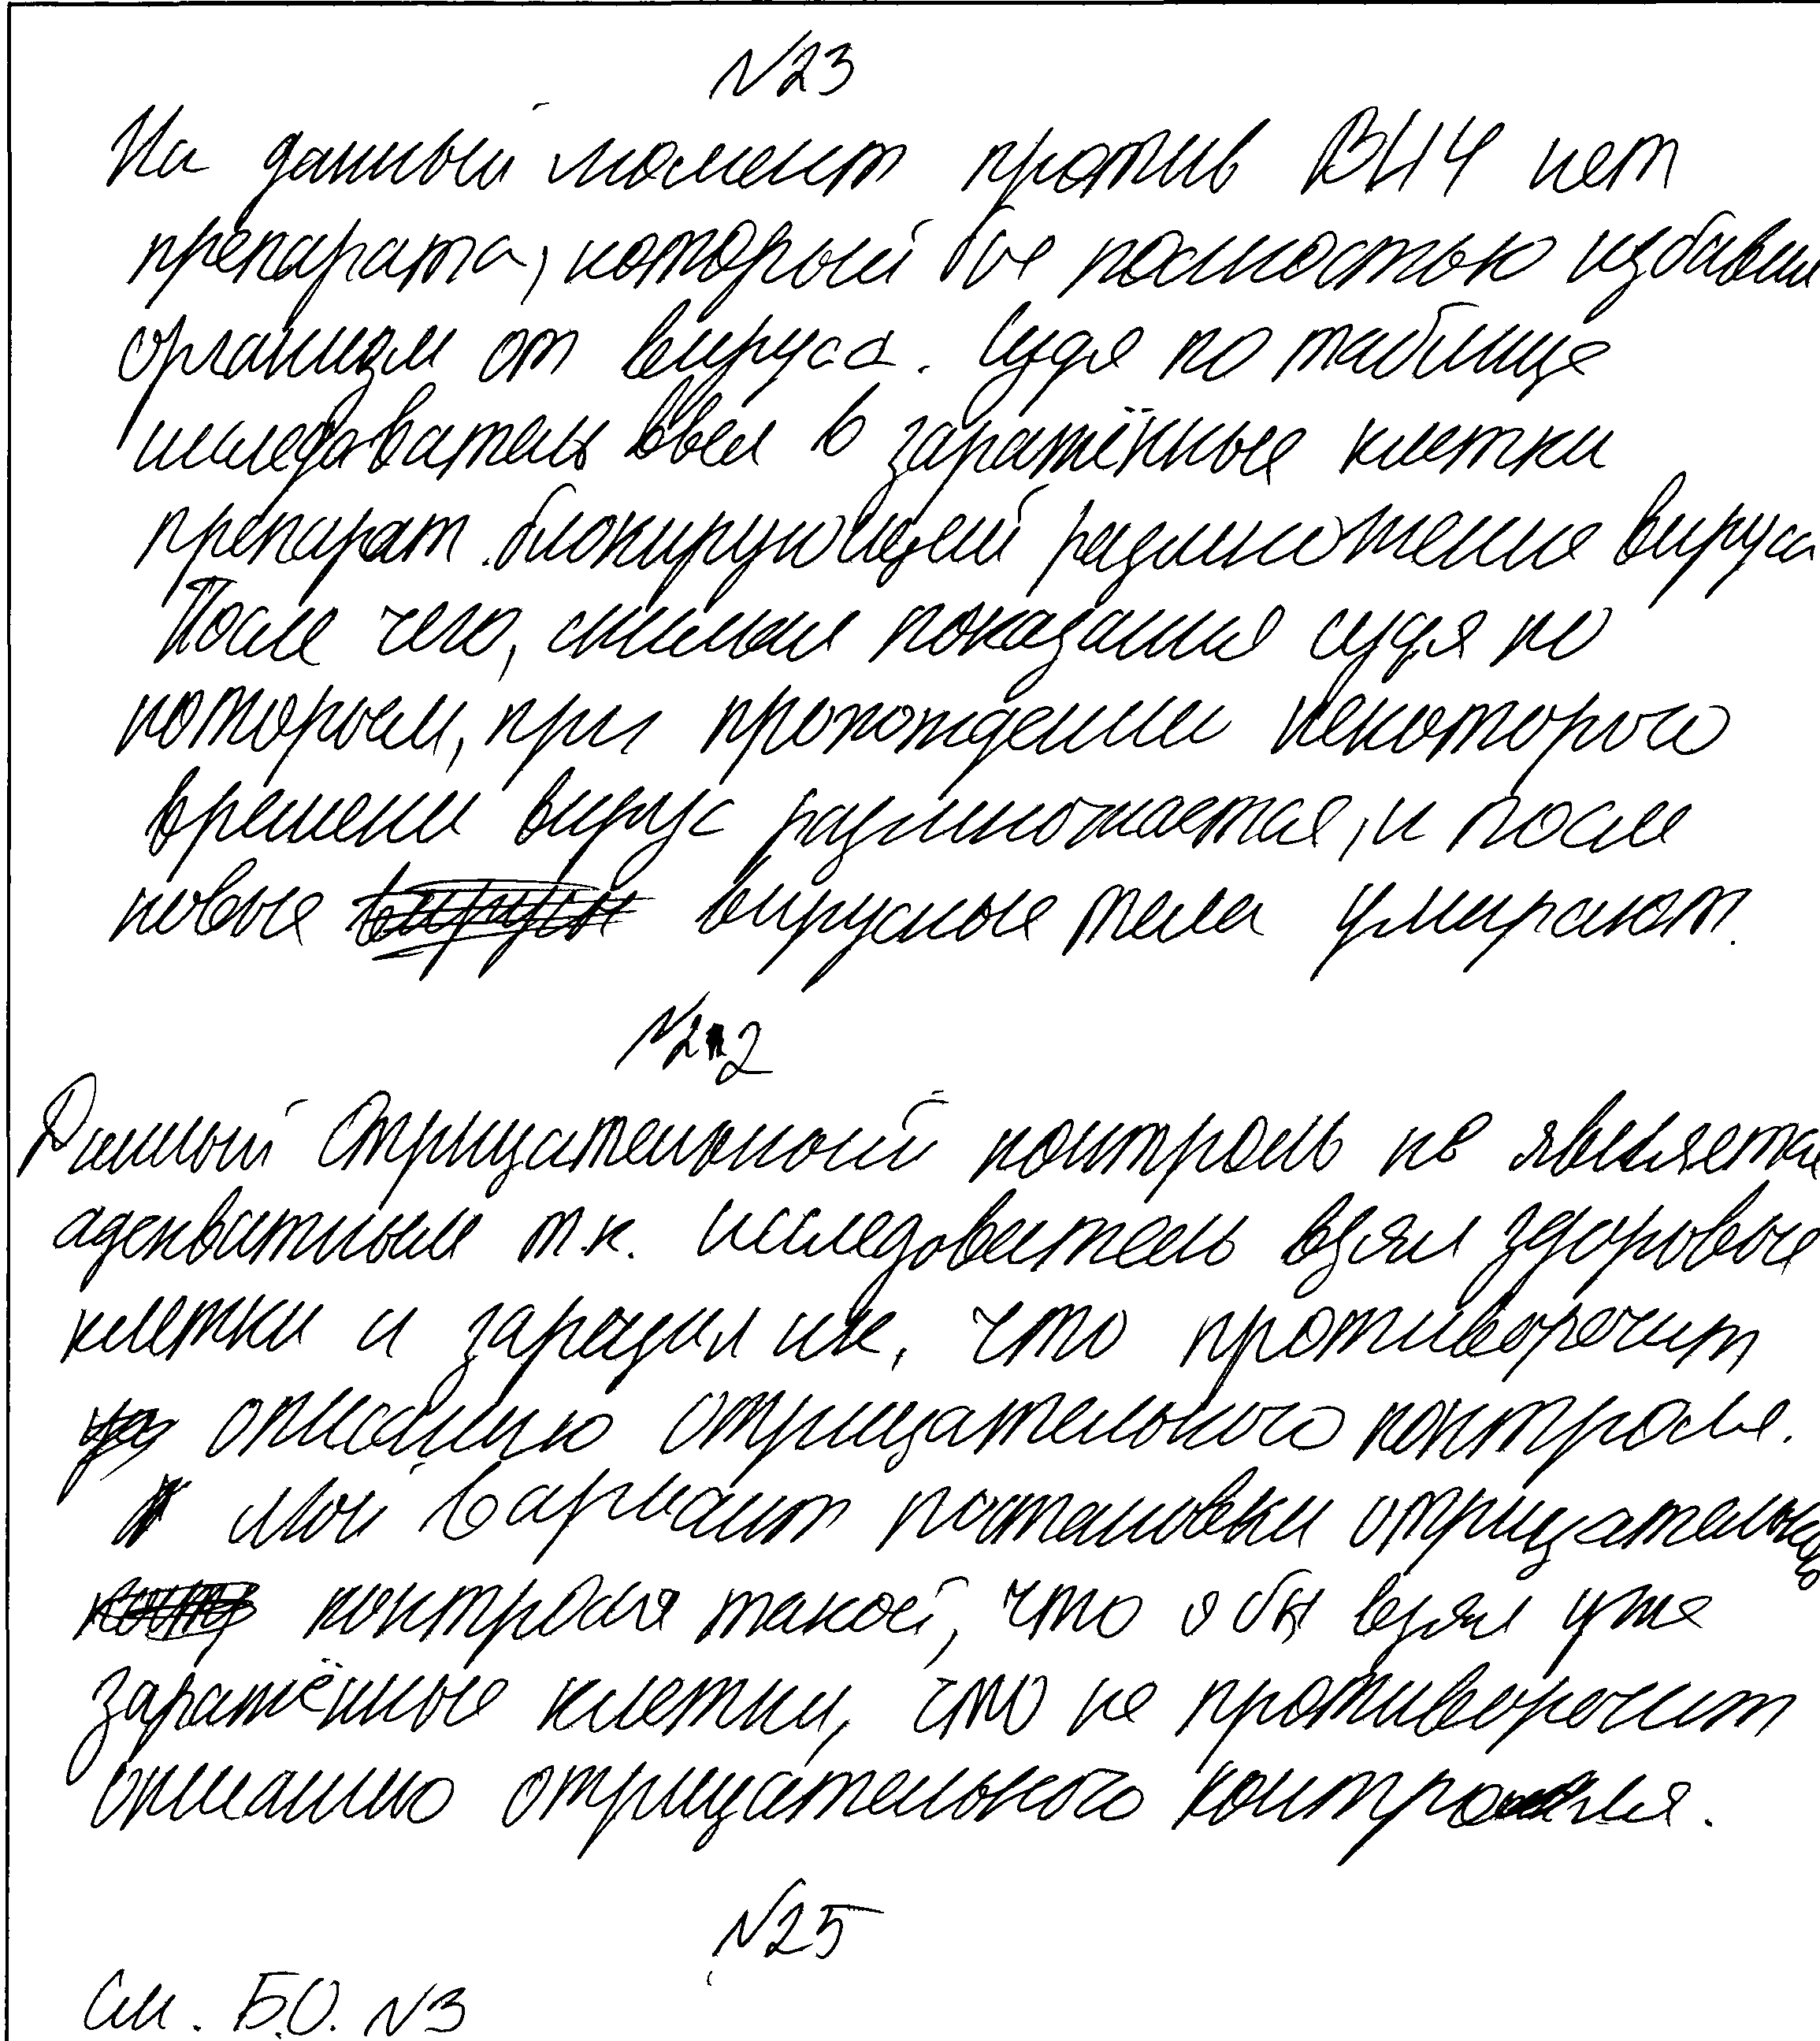 №23
На данный момент против ВИЧ нет
препарата, который бы полностью избавил
организм от вируса. Судя по таблице
исследователь ввёл в заражённые клетки
препарат блокирующий размножение вируса
После чего, снимал показания судя по
которым, при прохождении некоторого
времени вирус размножается, и после
новые вирусные тела умирают.
№22
Данный отрицательный контроль не является
адекватным т.к. исследователь взял здоровые
клетки и заразил их, что противоречит
описанию отрицательного контроля.
Мой вариант постановки отрицательного
контроля такой, что я бы взял уже
заражённые клетки, что не противоречит
описанию отрицательного контроля.
№25
См. Б.О. №3